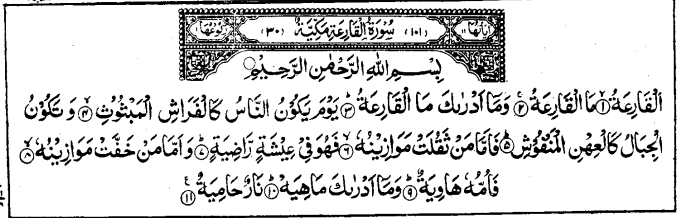 اٰیَاتُهَا (١٠١) سُوْرَةُ الْقَارِعَةِ مَكِّيَّةٌ (٣٠) رُكُوْعُهَا
بِسْمِ اللهِ الرَّحْمٰنِ الرَّحِيْمِ
اَلْقَارِعَةُ ۙ﴿١﴾ مَا الْقَارِعَةُ ۚ﴿٢﴾ وَمَاۤ اَدْرٰىكَ مَا الْقَارِعَةُ ؕ﴿٣﴾ يَوْمَ يَكُوْنُ النَّاسُ كَالْفَرَاشِ الْمَبْثُوْثِ ۙ﴿٤﴾ وَ تَكُوْنُ
الْجِبَالُ كَالْعِهْنِ الْمَنْفُوْشِ ؕ﴿٥﴾ فَاَمَّا مَنْ ثَقُلَتْ مَوَازِيْنُهٗ ۙ﴿٦﴾ فَهُوَ فِيْ عِيْشَةٍ رَّاضِيَةٍ ؕ﴿٧﴾ وَ اَمَّا مَنْ خَفَّتْ مَوَازِيْنُهٗ ۙ﴿٨﴾
فَاُمُّهٗ هَاوِيَةٌ ؕ﴿٩﴾ وَمَاۤ اَدْرٰىكَ مَا هِيَهْ ؕ﴿١٠﴾ نَارٌ حَامِيَةٌ ﴿١١﴾